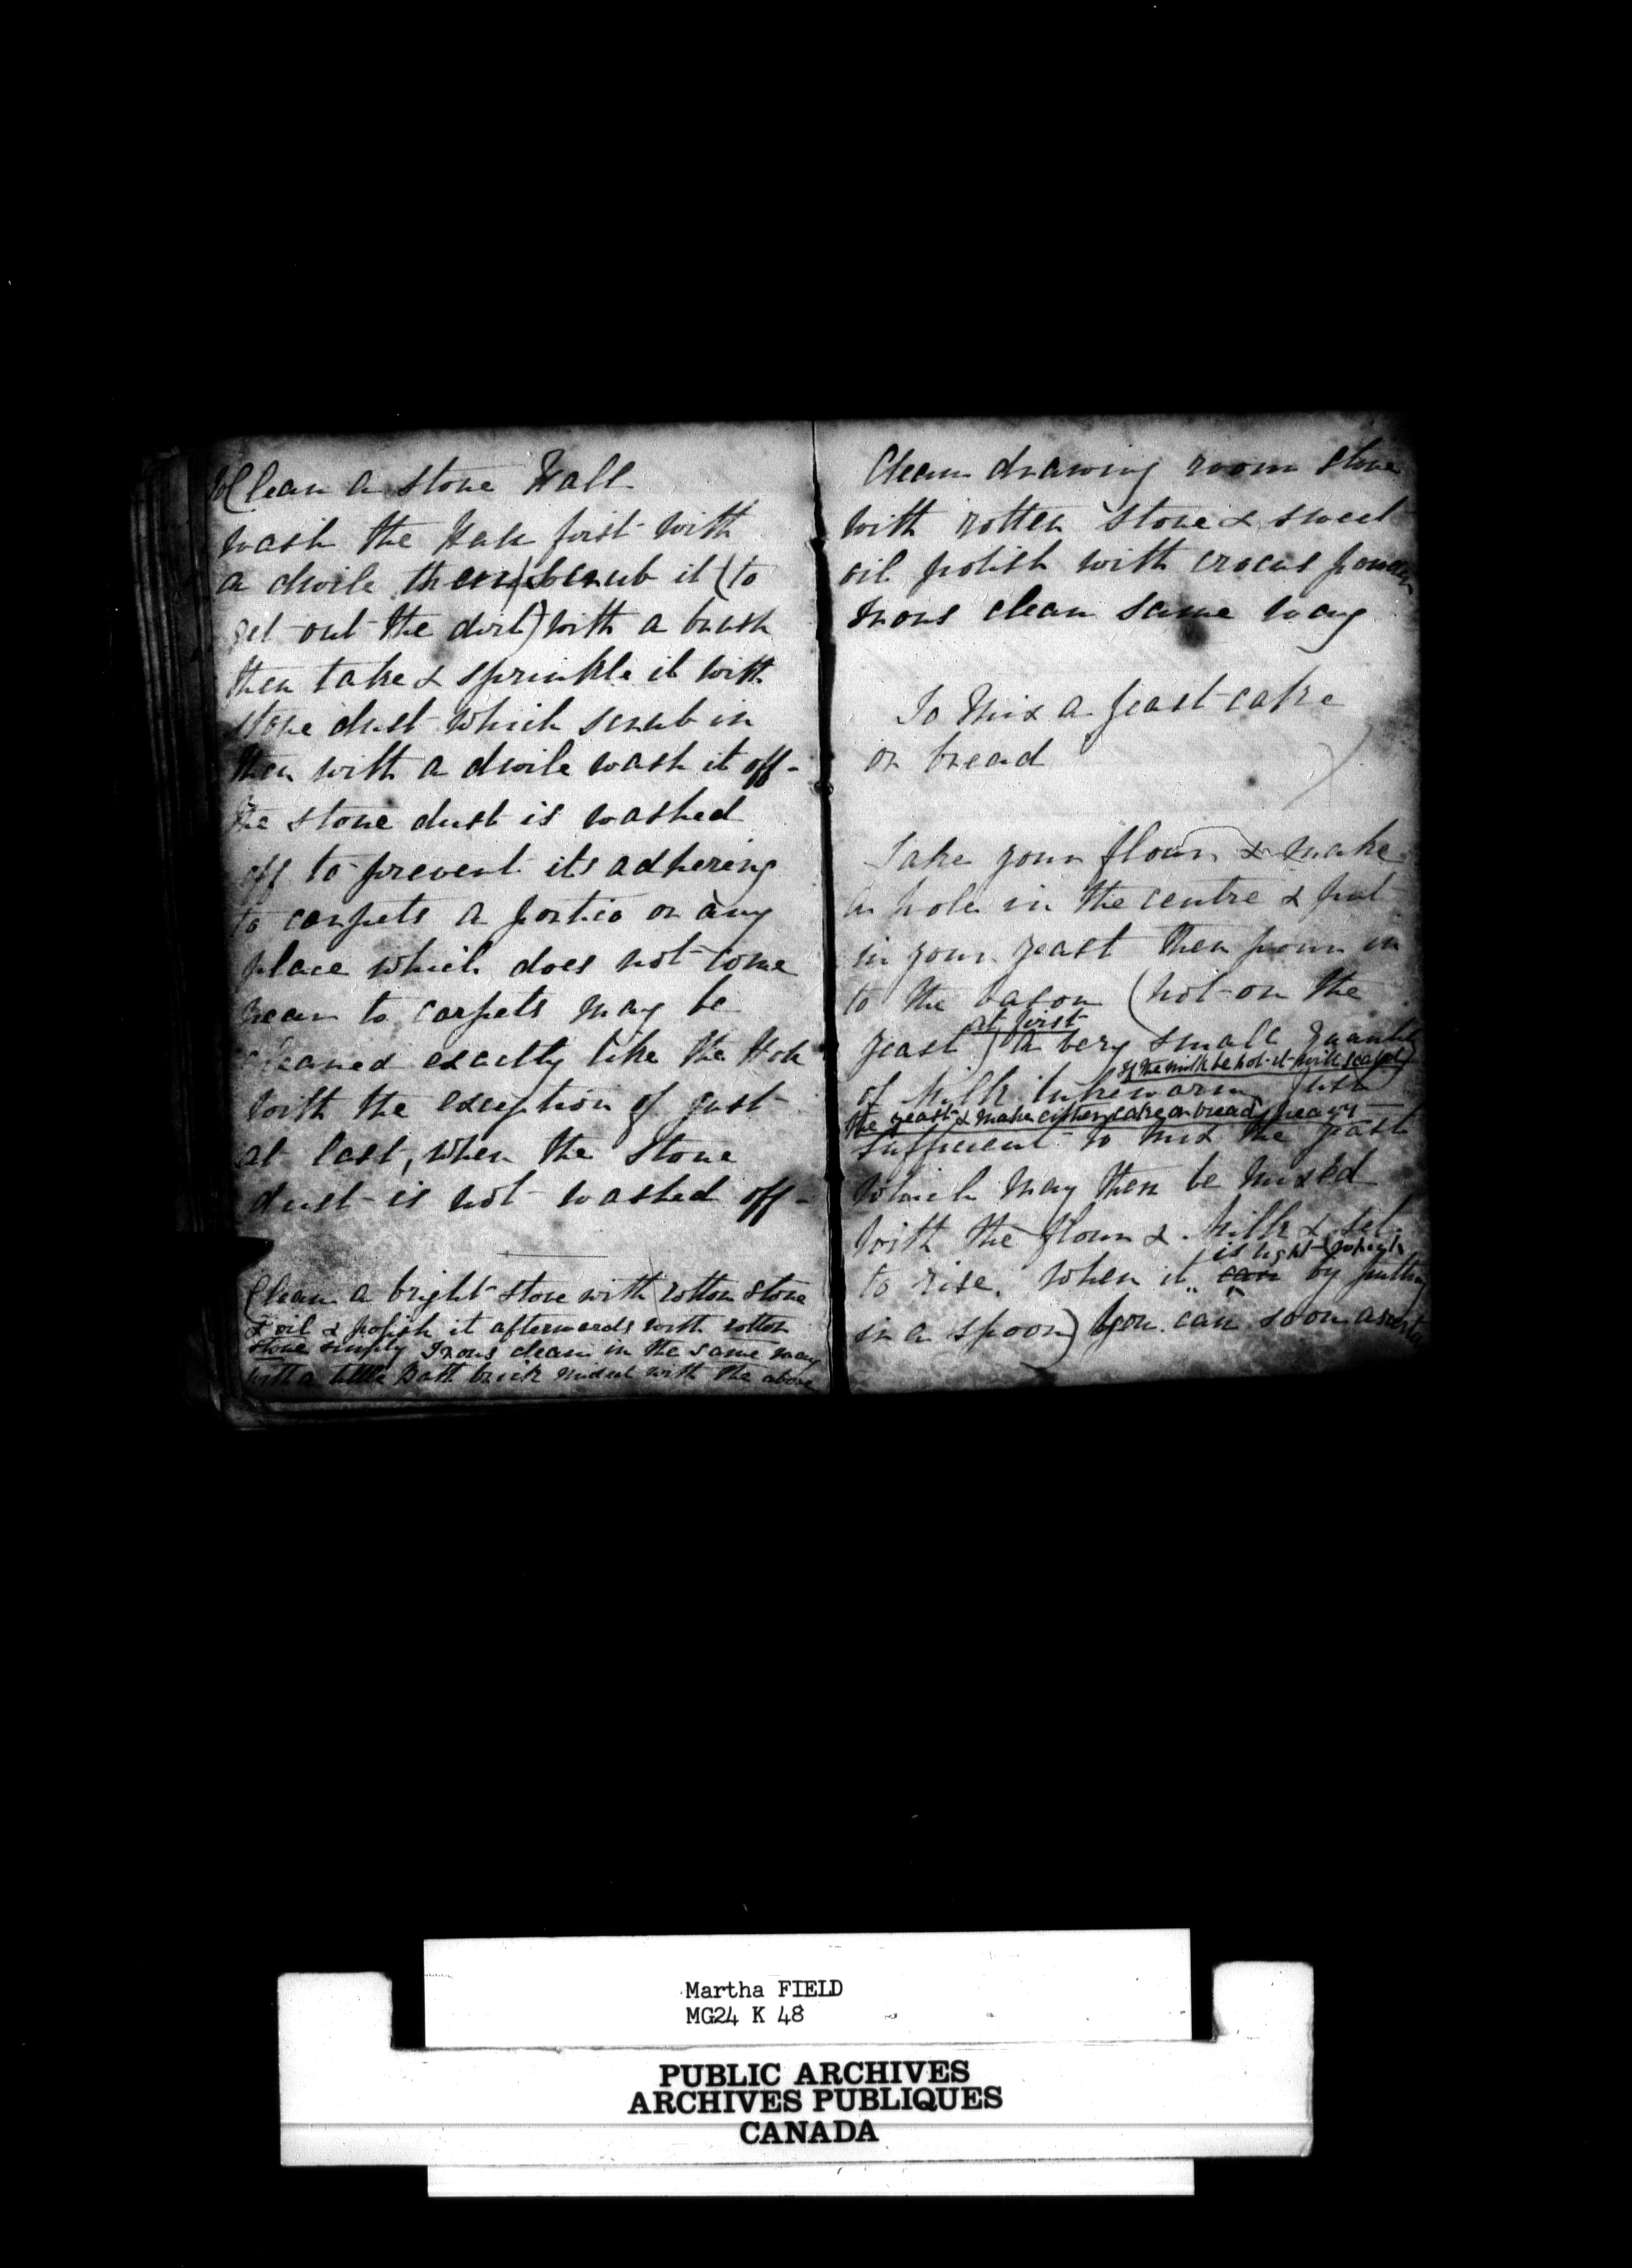 To Clean a stone Hall
wash the Hall first with
a dwile then scrub it (to
get out the dirt) with a brush
then take & sprinkle it with
stone dust which scrub in
then with a dwile wash it off -
The stone dust is washed
off to prevent its adhering
to carpets a portico or any
place which does not come
near to carpets may be
cleaned exactly like the Hall
with the exception of just
at last, when the stone
dust is not washed off -
Clean a bright stove with rotton stone
& oil & polish it afterwards with rotton
stone simply Irons clean in the same way
with a little Bath brick mixed with the above
Clean drawing room stove
with rotten stone & sweet
oil polish with crocus powder
Irons clean same way
To Mix a yeast cake
or bread
Take your flour & make
a hole in the centre & put
in your yeast then pour in
to the bason (not on the
at first
yeast) a very small quantity
If the milk be hot it will scald
of Milk lukewarm just
the yeast & make either cake or bread heavy
sufficient to mix the yeast
which may then be mixed
with the flour & Milk & set
is light (which
to rise. When it can by putting
in a spoon) you can soon ascertain
Martha FIELD
MG24 K 48
PUBLIC ARCHIVES
ARCHIVES PUBLIQUES
CANADA